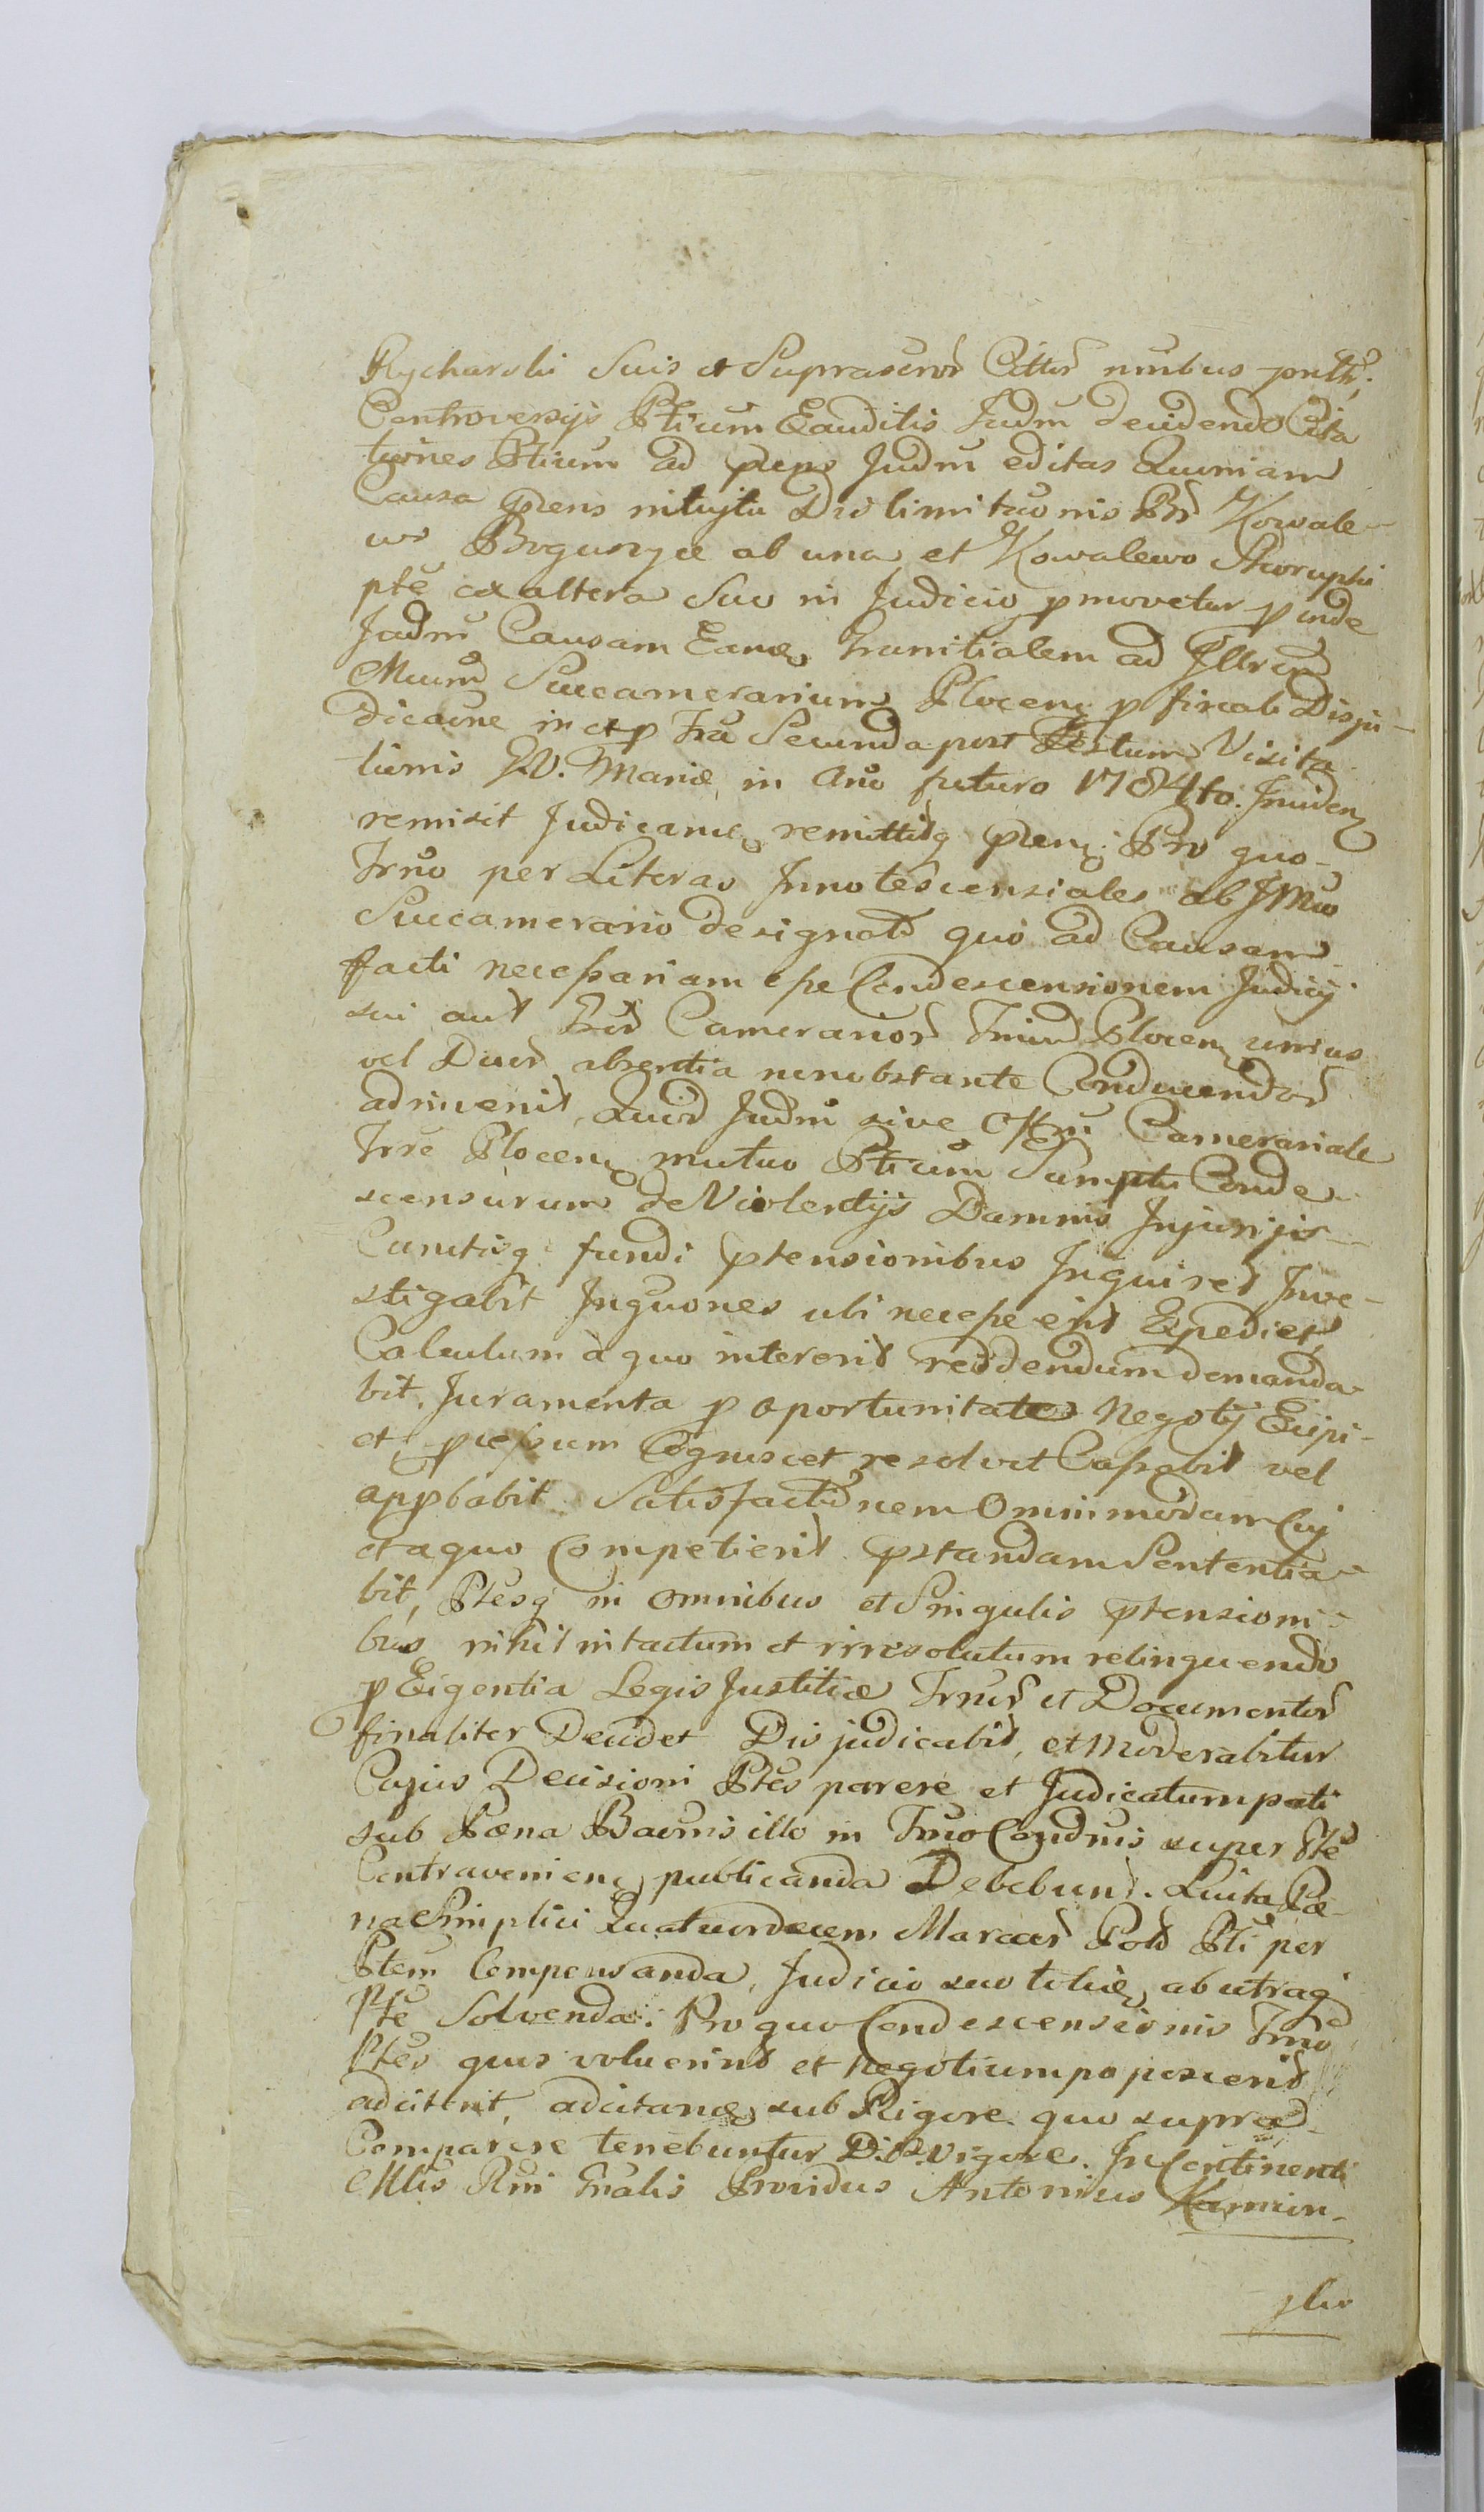 Rycharski Suis et Suprascror Cittor nnibus
Controversijs Ptium Exauditis Judm decidendo Cita
tiones Ptium ad præns Judm editas Quoniam
Causa præns intuitu Dislimitaonis Bor Kowale-
wo Boguszyce ab una et Kowalewo Skorupki
pte ex altera Suo in Judicio pmovetur pinde
Judm Causam Eande Granitialem ad Illrem
Mcum Succamerarium Plocen p finali Disju-
dicaone in et p Fria Secunda post Festum Visita
tionis B.V. Mariæ in Ano futuro 1784to. Inciden
remisit Judicarie remittitq præn. Pro quo-
Trno per Literas Innotescenciales ab J Mco
Succamerario designato quo ad Causam
facti necessariam esse Condescensionem Judicij
sui aut Camerarior Plocen unius
vel Duor absentia nonobstante Conducendor
adinvenit, Quod Judm sive Offm Camerariale
Trre Plocen mutuo Ptium Sumptu Conde
scensurum de Violentijs Damnis Injurijs
Cunctisq fundi ptensionibus Inquiret Inve-
stigabit Inquones ubi necesse erit Expediet
Calculum à quo intererit reddendum demanda-
bit. Juramenta p oportunitate Negotij Excipi-
et, pcessum Cognoscet resolvet Cassabit vel
appbabit Satisfactionem Omnimodam Cuj
et a quo Competierit pstandam Sententia-
bit, Ptesq in omnibus et Singulis ptensioni-
bus nihil intactum et irresolutum relinquendo
p Exigentia Legis Justitiæ Trnor et Documentor
finaliter Decidet Disjudicabit, et Moderabitur
Cujus Decisioni Ptes parere et Judicatum pati
sub Pæna Baonis illo in Trno Condnis super Pte
Contravenien publicanda Debebunt. Luita Pæ-
na Simplici Quatuordecem Marcar Pold Pti per
Ptem Compensanda, Judicio suo toties ab utraq
Pte Solvenda. Pro quo Condescensionis Trno
Ptes quos voluerint et Negotium poposcerit
adcitent, adcitandæ sub Rigore quo supra
Comparere tenebuntur D: D: vigore. In Continenti
Mlis Rni Gnalis Providus Antonius Kamin-
ski